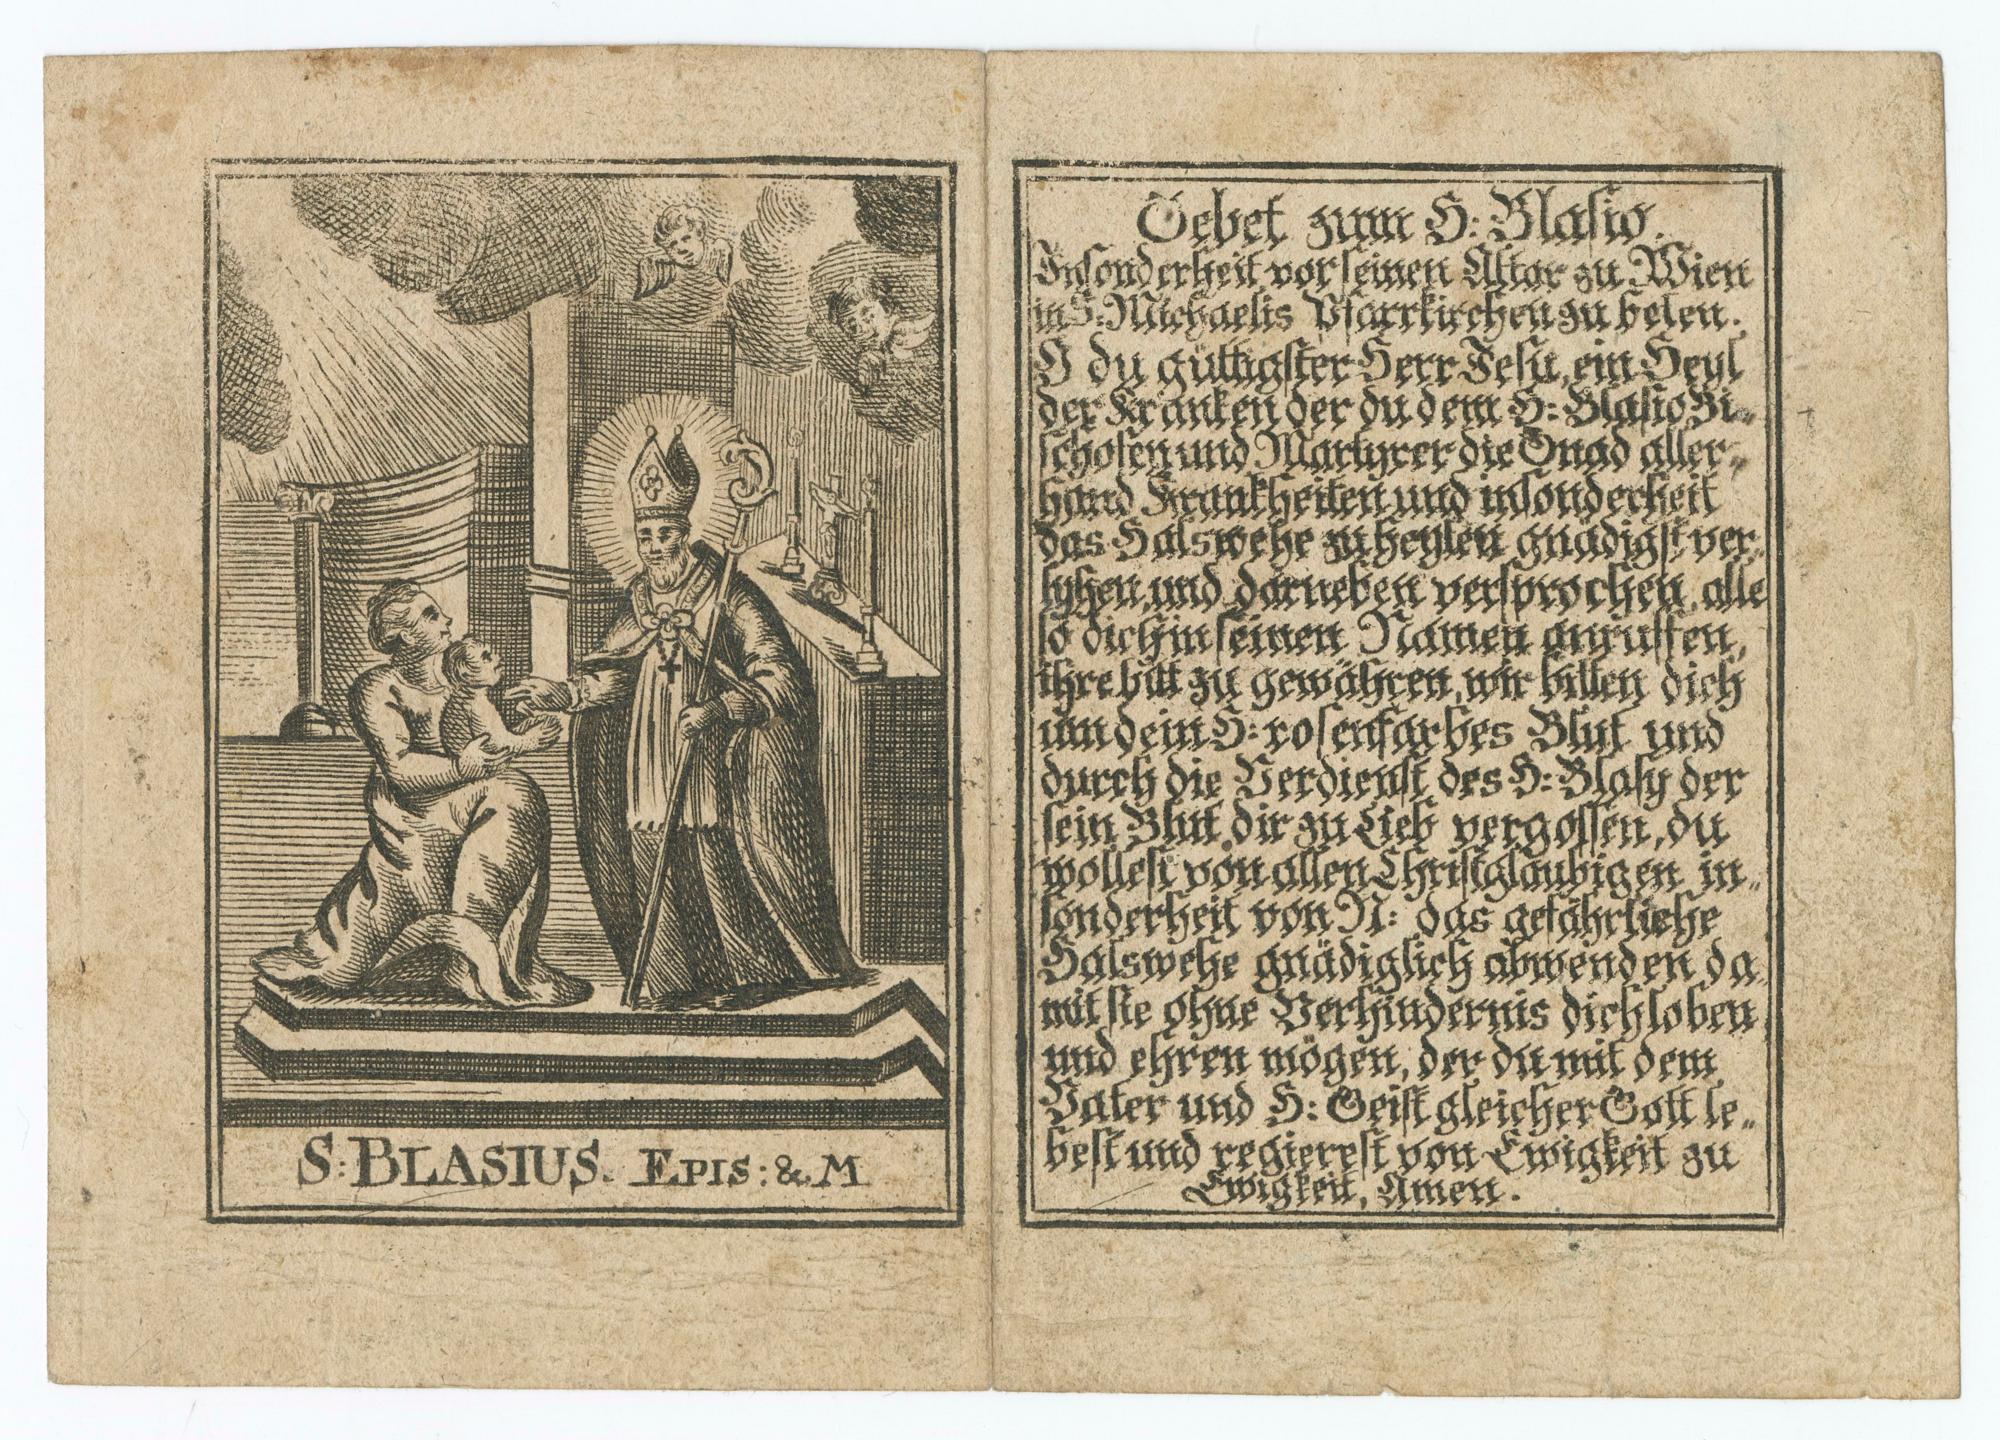 S: BLASIUS. EPIS: & M
Gebet zum H: Blasio.
Insonderheit vor seinen Altar zu Wien
in S: Michaelis Pfarrkirchen zu beten.
O du güttigster Herr Jesu, ein Heyl
der Kranken der du dem H: Blasio Bi-
schofen und Martyrer die Gnad aller-
hand Krankheiten und insonderheit
das Halswehe zu heylen gnädigst ver-
lyhen, und darneben versprochen, alle
so dich in seinen Namen anruffen,
ihre bitt zu gewähren, wir bitten dich
um dein H: rosenfarbes Blut und
durch die Verdienst des H: Blasy der
sein Blut dir zu Lieb vergossen, du
wollest von allen Christglaubigen in-
sonderheit von N: das gefährliche
Halswehe gnädiglich abwenden da
mit sie ohne Verhindernis dich loben
und ehren mögen, der du mit dem
Vater und H: Geist gleicher Gott le-
best und regierest von Ewigkeit zu
Ewigkeit, Amen.